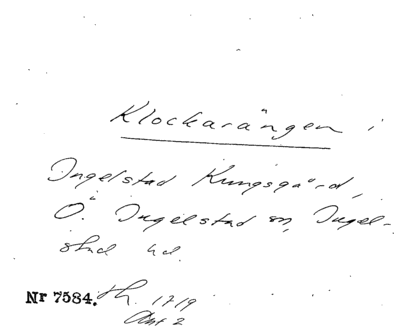 Klockarängen i
Ingelstad Kungsgård,
Ö. Ingelstad sn, Ingel-
stad hd.
Nr 7584. 1719
Akt 2